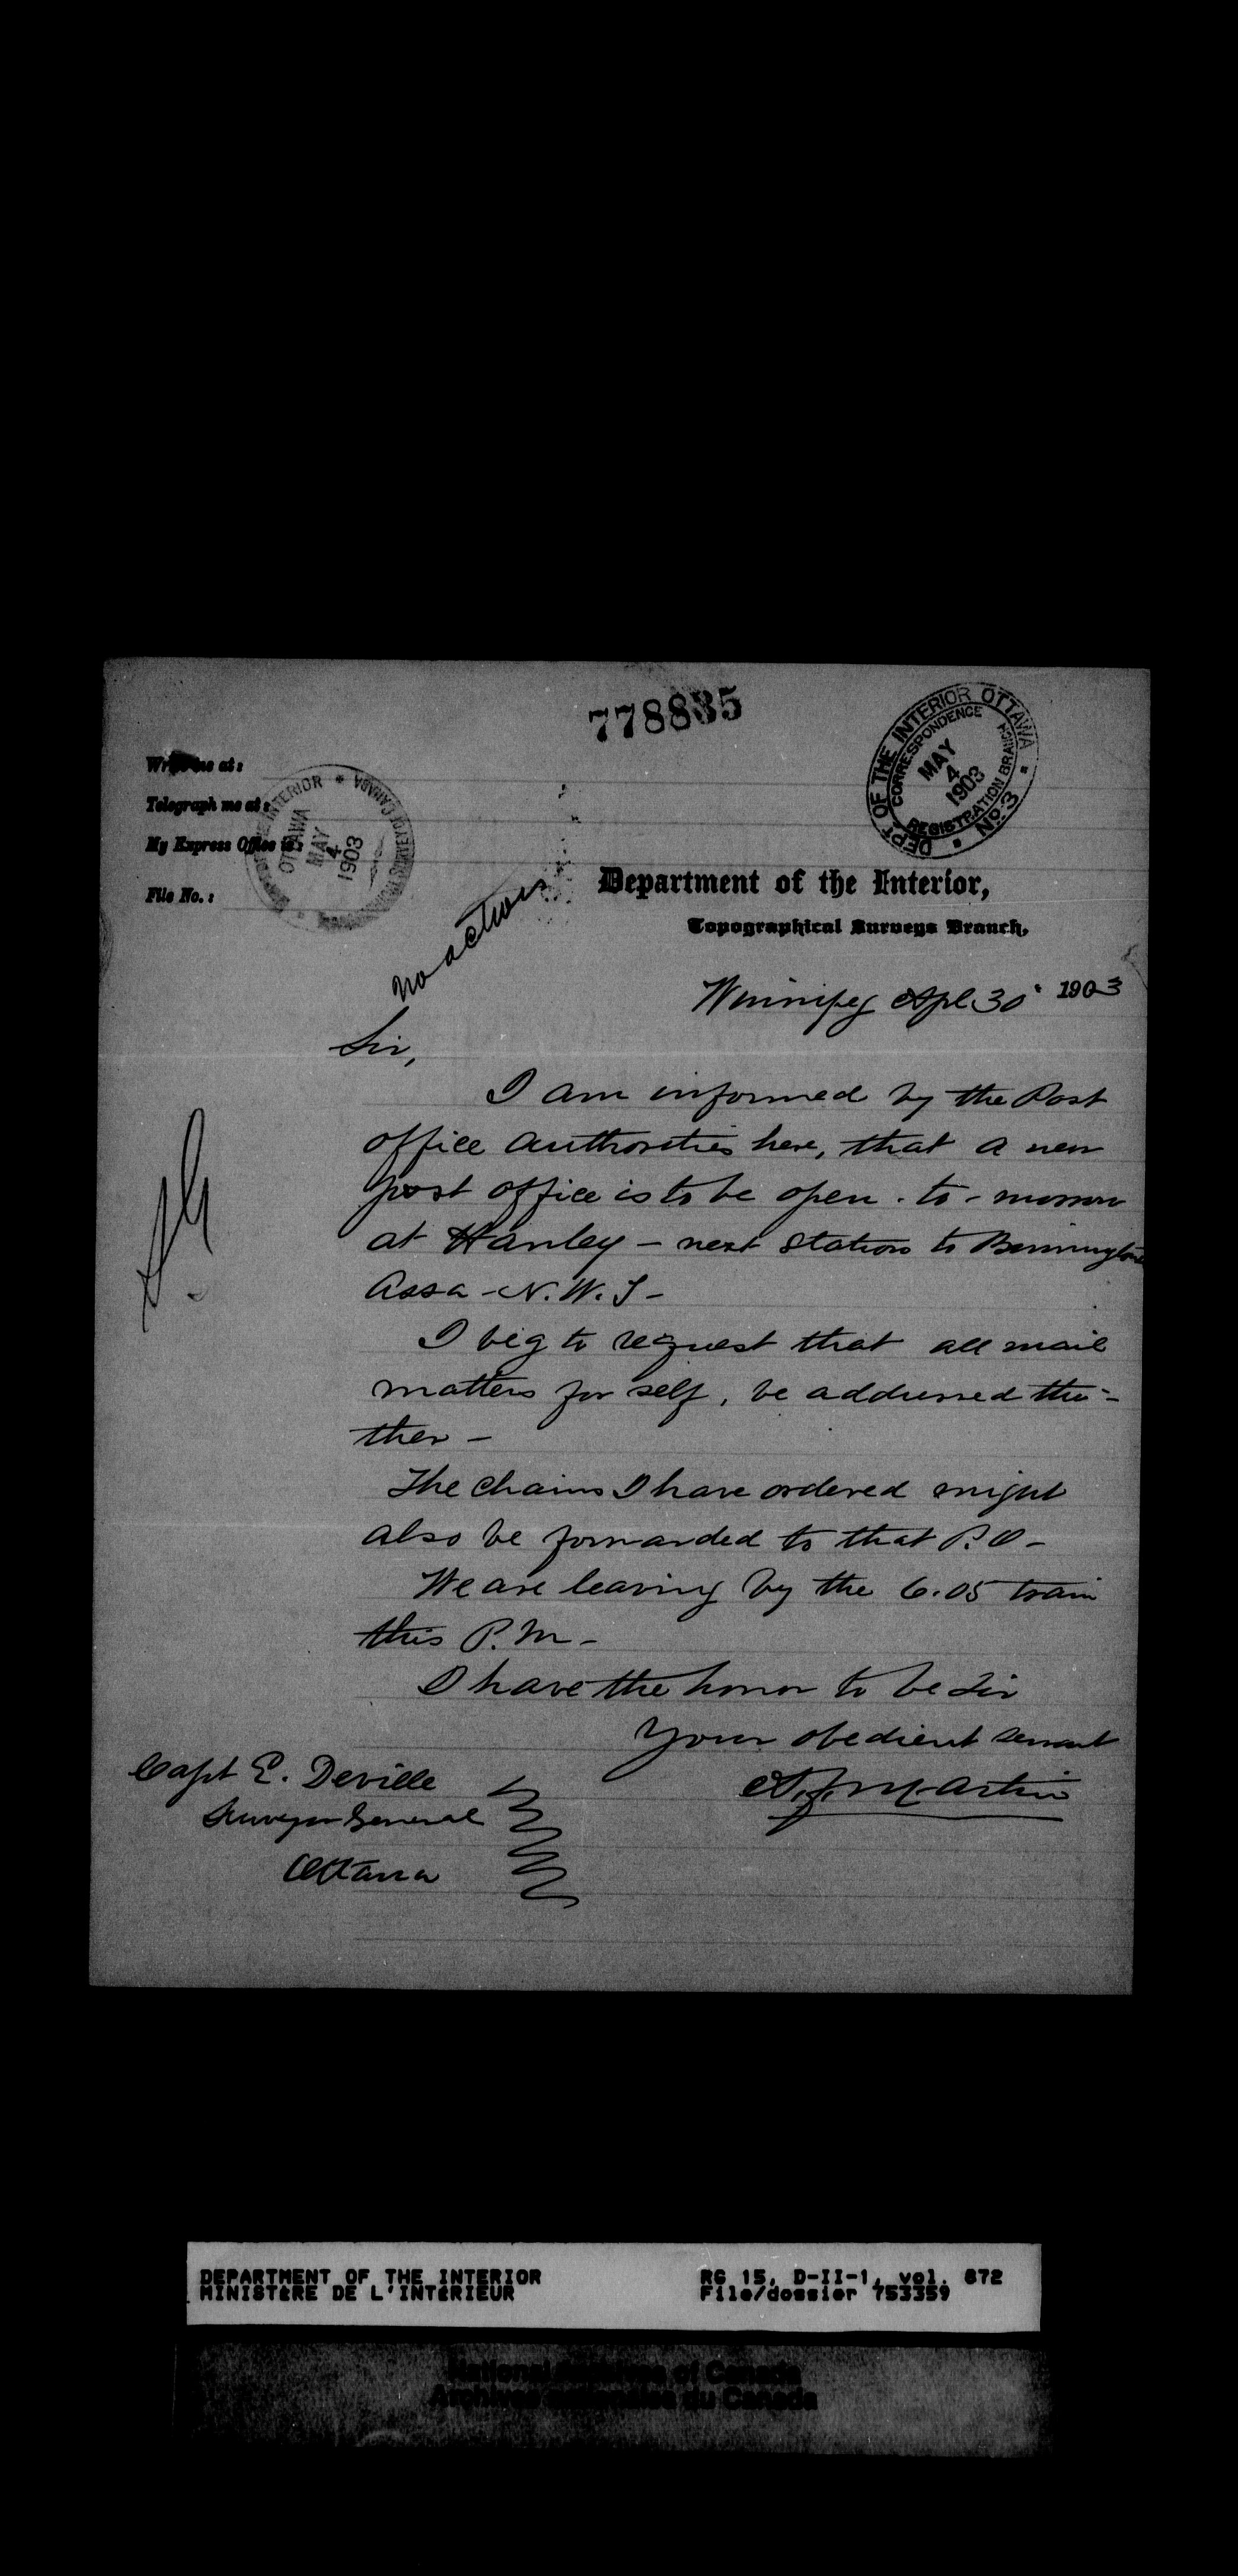 778835
DEPT OF THE INTERIOR OTTAWA
CORRESPONDENCE
MAY
4
1903
REGISTRATION BRANCH
No. 3
Write me at:
Telegraph me at:
My Express Office is:
File No.:
INTERIOR
OTTAWA
MAY
4
1903
CANADA
no action
Department of the Interior,
Topographical Surveys Branch,
Winnipeg Apl 30 1903
Sir,
I am informed by the Post
office authorities here, that a new
post office is to be open to-morrow
at Hanley - next station to
Assa - N.W.T -
I beg to request that all mail
matters for self, be addressed thi-
ther -
The chains I have ordered might
also be forwarded to that P.O -
We are leaving by the 6.05 train
this P.M -
I have the honor to be Sir
Your obedient servant
Martin
Capt E. Deville
Surveyor General
Ottawa
DEPARTMENT OF THE INTERIOR
MINISTÈRE DE L'INTÉRIEUR
RG 15, D-II-1, vol. 872
File/dossier 753359
National Archives of Canada
Archives nationales du Canada